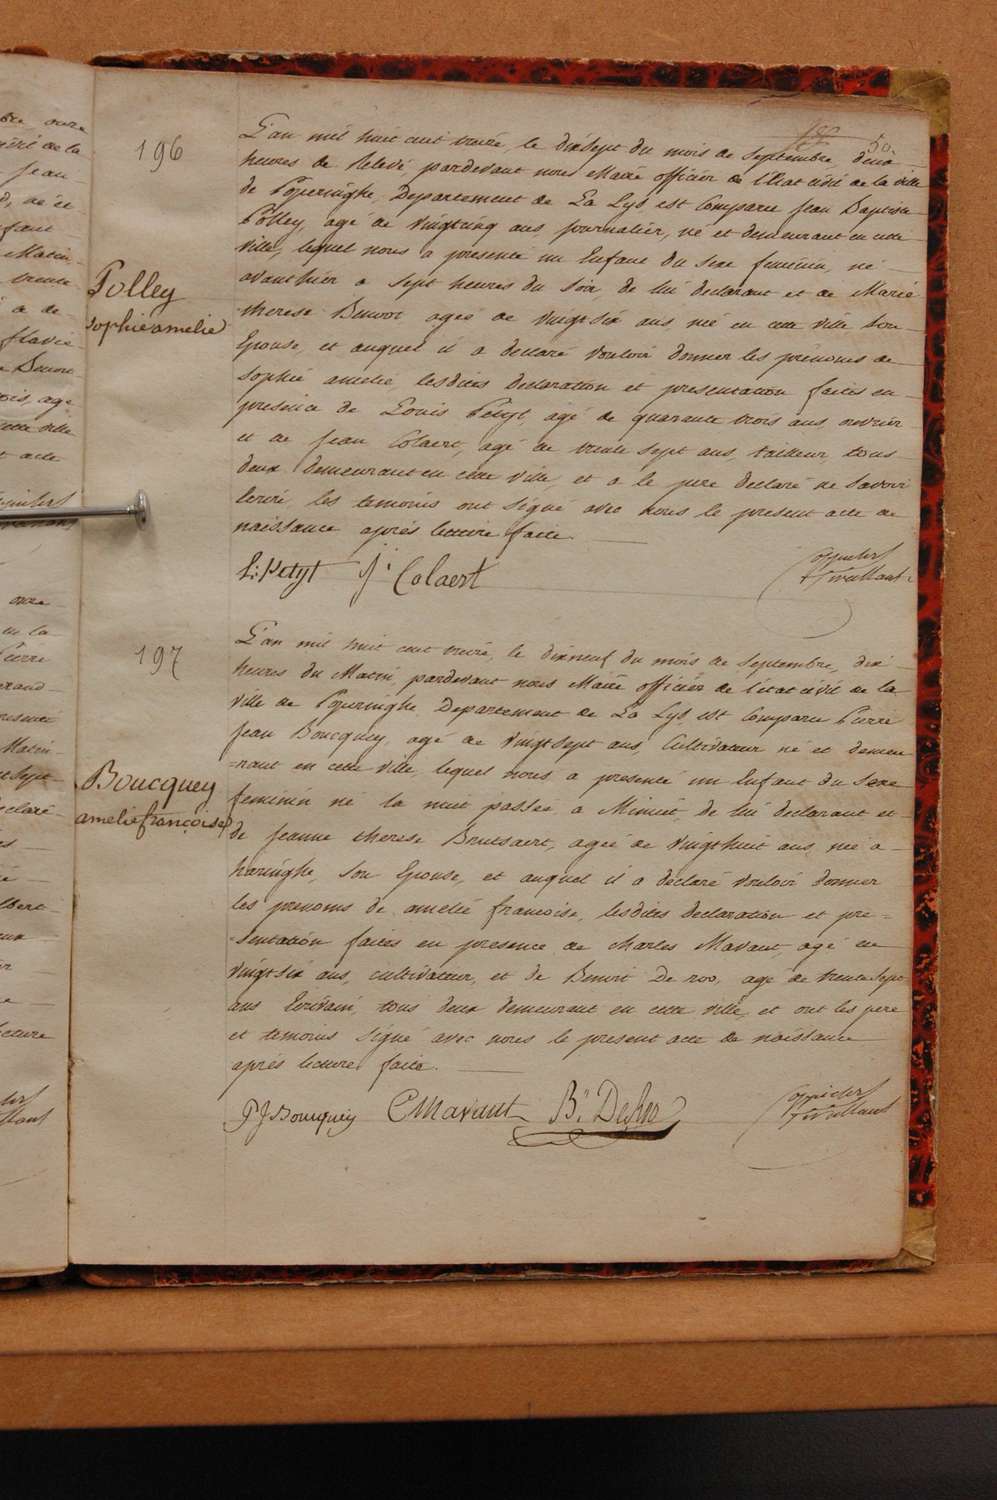 50
196
Polley
sophie amelie
L'an mil huit cent treize, le dixsept du mois de Septembre, deux
heures de Relevé, pardevant nous Maire officier de l'Etat civil de la ville
de Poperinghe, Departement de La Lys, est Comparu Jean Baptiste
Polley, agé de Vingtcinq ans, Journalier, né et demeurant en cette
Ville, lequel nous a presenté un Enfant du Sexe feminin, né
avanthier a Sept heures du Soir, de lui declarant et de Marie
therese agée de Vingtsix ans, née en cette Ville, Son
Epouse, et auquel il a declaré Vouloir donner les prénoms de
Sophie amelie, lesdites declaration et presentation faites en
presence de Louis Petyt, agé de quarante trois ans, ouvrier
et de Jean Colaert, agé de trente Sept ans, tailleur, tous
deux demeurant en cette Ville, et a le pere declaré ne Savoir
Ecrire, les temoins ont Signé avec nous le present acte de
naissance après lecture faite.
L: Petyt J: Colaert
197
Boucquey
amelie françoise
L'an mil huit cent treize, le dixneuf du mois de Septembre, dix
heures du Matin, pardevant nous Maire officier de l'etat civil de la
Ville de Poperinghe, Departement de La Lys, est Comparu Pierre
Jean Boucquey, agé de Vingtsept ans, Cultivateur né et demeu
=rant en cette ville, lequel nous a presenté un Enfant du Sexe
feminin né la nuit passée a Minuit, de lui declarant et
de Jeanne therese Brutsaert, agée de Vingthuit ans, née a
haringhe, Son Epouse, et auquel il a declaré Vouloir donner
les prenoms de amelie francoise, lesdites declaration et pre=
=sentation faites en presence de Charles Mavaut, agé de
Vingtsix ans, cultivateur, et de Benoit De roo, agé de trente Sept
ans Ecrivain, tous deux demeurant en cette Ville, et ont les pere
et temoins Signé avec nous le present acte de naissance
après lecture faite.
PJ Boucquey C Mavaut B: DeRoo